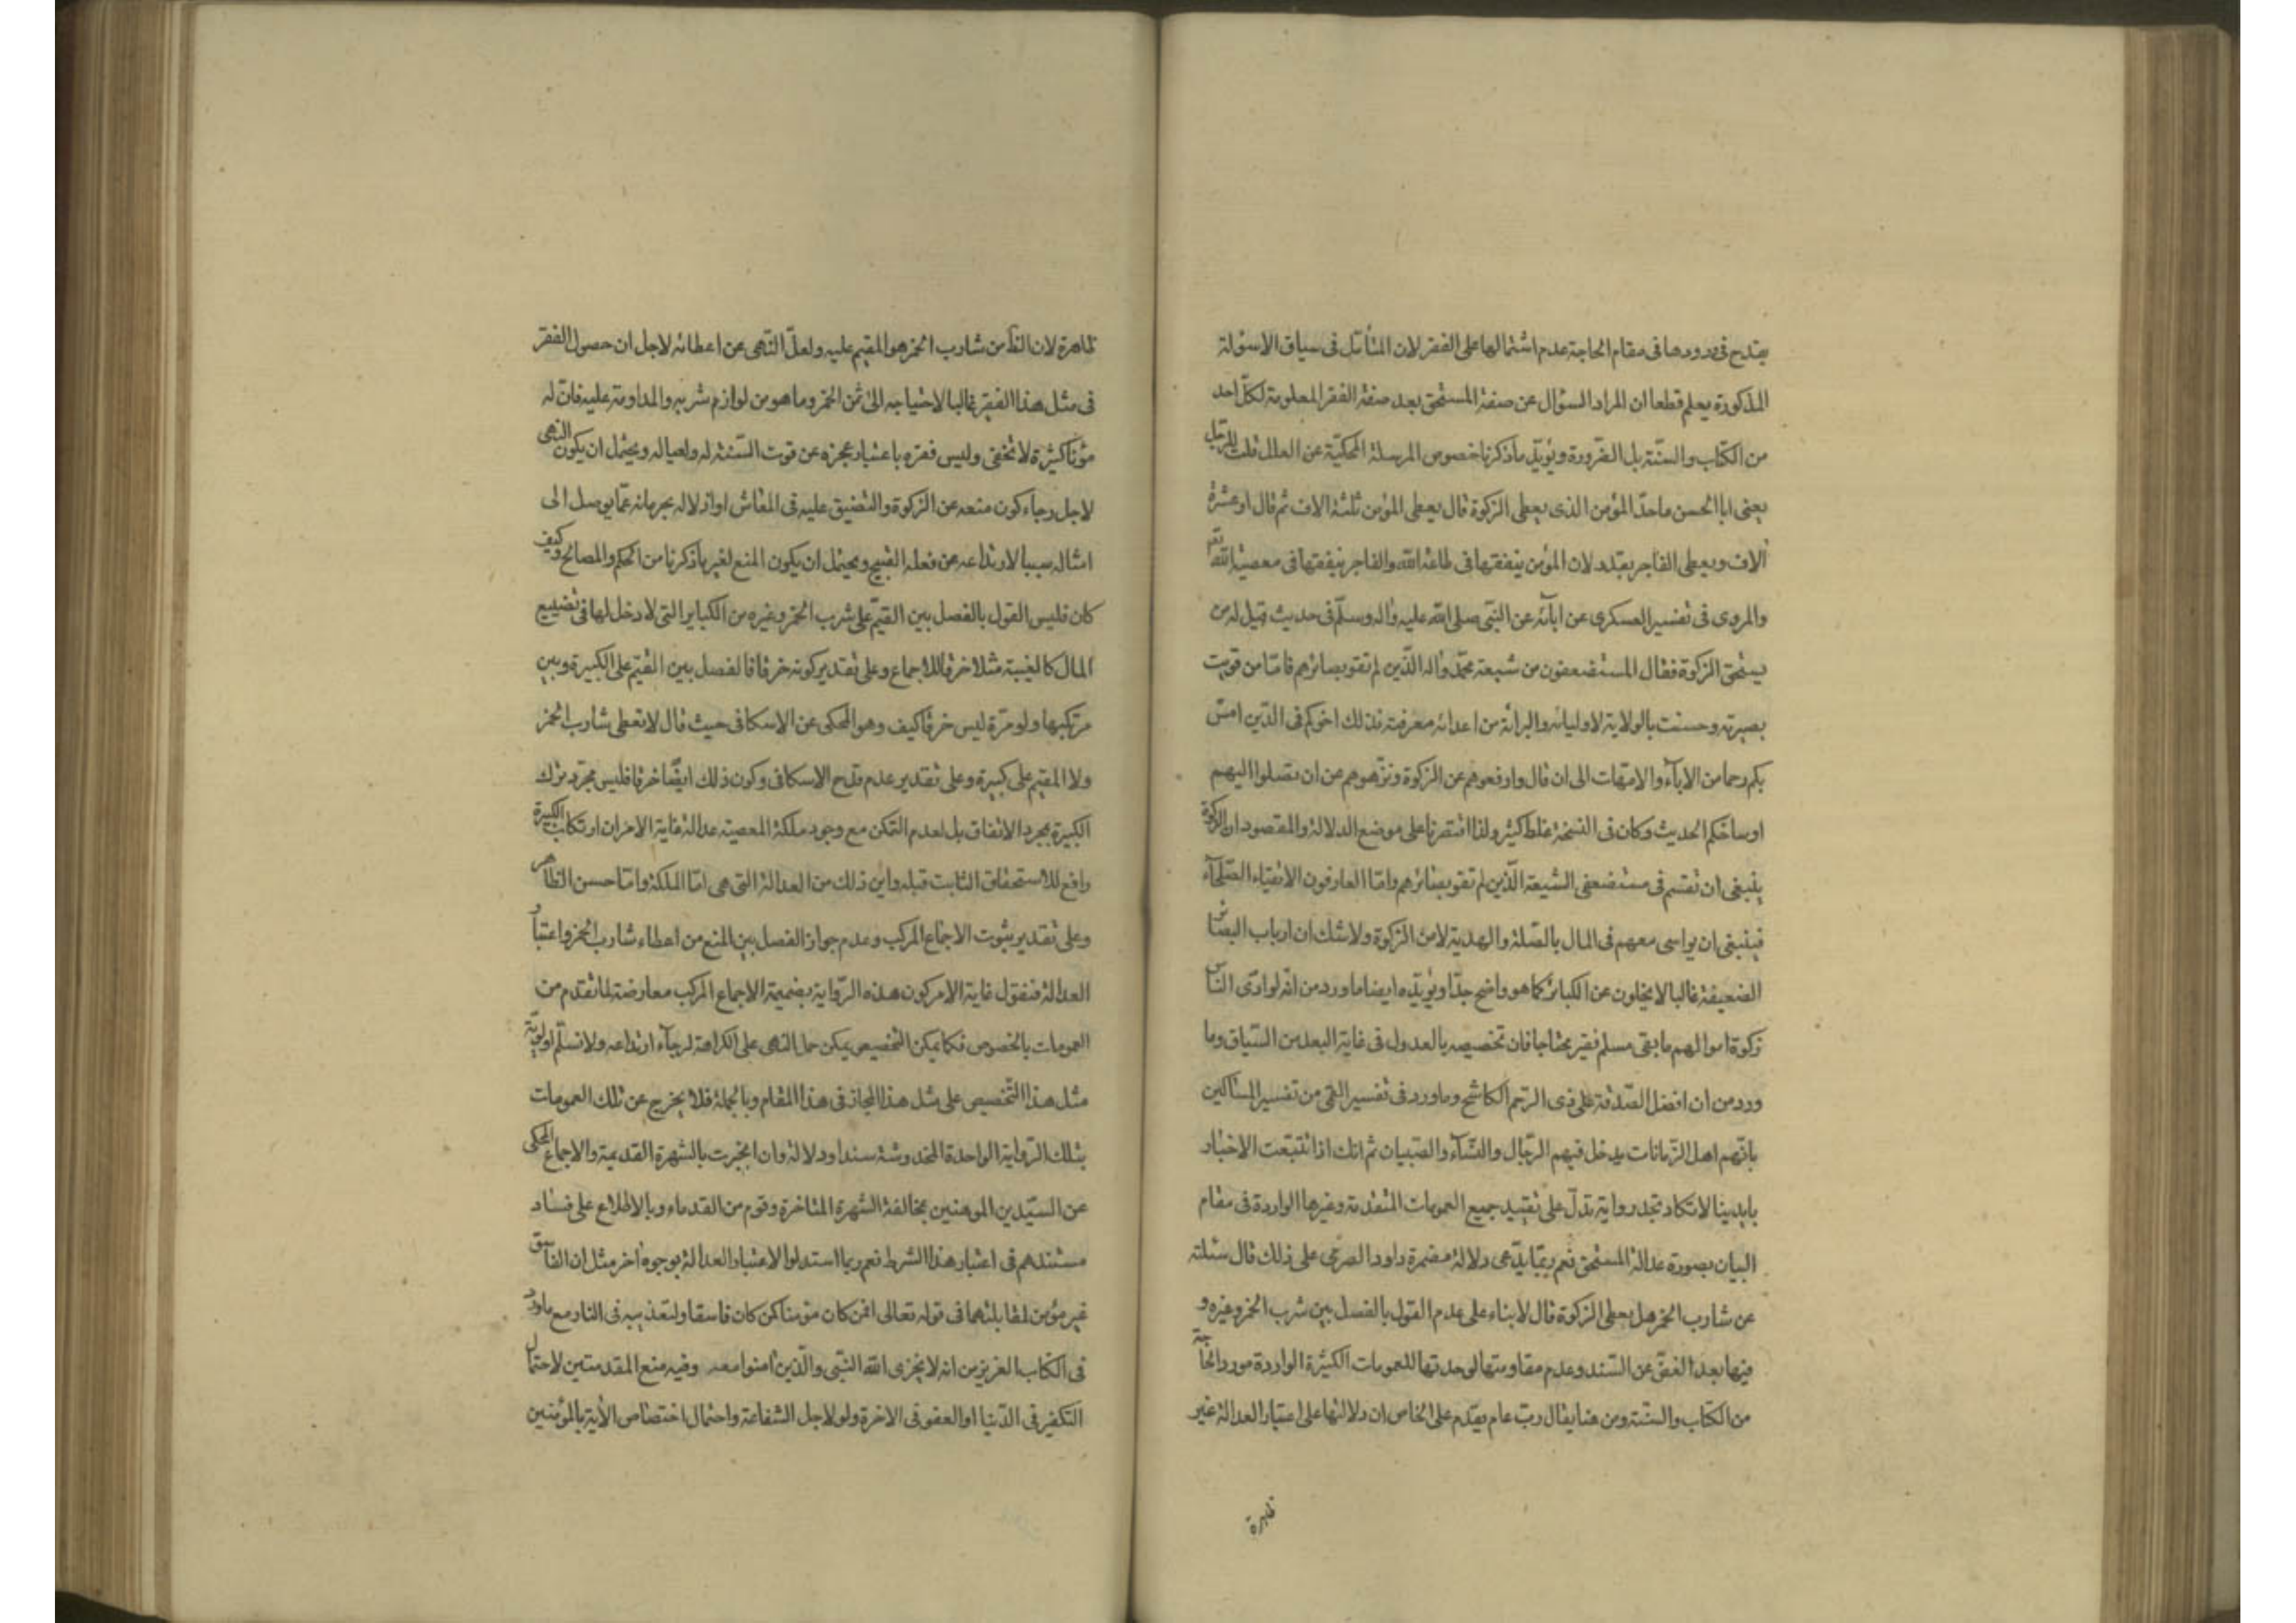 يقدح فى ورودها فى مقام الحاجة عدم اشتمالها على الفقر لان المتأمّل فى سياق الاسؤلة
المذكورة يعلم قطعا ان المراد السؤال عن صفة المستحق بعد صفة الفقر المعلومة لكلّ احد
من الكتاب والسنّة بل الضرورة ويؤيّد ما ذكرنا خصوص المرسلة المحكيّة عن العلل قلت للرّجل
يعنى ابا الحسن ما حدّ المؤمن الذى يعطى الزكوة قال يعطى المؤمن ثلثة الاف ثم قال او عشرة
آلاف ويعطى الفاجر بقدر لان المؤمن ينفقها فى طاعة الله والفاجر ينفقها فى معصية الله تعم
والمروى فى تفسير العسكرى عن ابائه عن النبّى صلى الله عليه واله وسلّم فى حديث قيل له من
يستحق الزكوة فقال المستضعفون من شيعة محمّد واله الذّين لم تقو بصائرهم فامّا من قويت
بصيرته وحسنت بالولاية لاوليائه والبرائة من اعدائه معرفته فذلك اخوكم فى الدّين امسّ
بكم رحما من الاباء والامّهات الى ان قال وارفعوهم عن الزكوة ونزّهوهم عن ان تصلوا اليهم
اوساخكم الحديث وكان فى النسخة غلط كثير ولذا اقتصرنا على موضع الدلالة والمقصود ان الزكوة
ينبغى ان تقسم فى مستضعفى الشيعة الّذين لم تقو بصائرهم وامّا العارفون الاتقياء الصّلحاء
فينبغى ان يواسى معهم فى المال بالصّلة والهدية لا من الزكوة ولا شك ان ارباب البصائر
الضعيفة غالبا لا يخلون عن الكبائر كما هو واضح جدّا ويؤيّده ايضا ما ورد من انّه لو ادّى الناس
زكوة اموالهم ما بقى مسلم فقير محتاجا فان تخصيصه بالعدول فى غاية البعد من السّياق وما
ورد من ان افضل الصّدقة على ذى الرّحم الكاشح وما ورد فى تفسير القمّى من تفسير المساكين
بانّهم اهل الزّمانات يدخل فيهم الرّجال والنّساء والصّبيان ثم انك اذا تتبّعت الاخبار
بايدينا لا تكاد تجد رواية تدلّ على تقييد جميع العمومات المتقدمة وغيرها الواردة فى مقام
البيان بصورة عدالة المستحق نعم ربمّا يدّعى دلالة مضمرة داود الصرمى على ذلك قال سئلته
عن شارب الخمر هل يعطى الزكوة قال لا بناء على عدم القول بالفصل بين شرب الخمر وغيره و
فيها بعد الغضّ عن السّند وعدم مقاومتها لوحدتها للعمومات الكثيرة الواردة مورد الحاجة
من الكتاب والسنّة ومن هنا يقال ربّ عام يقدّم على الخاص ان دلالتها على اعتبار العدالة غير
ظاهرة
ظاهرة لان الظّ من شارب الخمر هو المقيم عليه ولعلّ النّهى عن اعطائه لاجل ان حصول الفقر
فى مثل هذا الفقير غالبا لاحتياجه الى ثمن الخمر وما هو من لوازم شربه والمداومة عليه فانّ له
مؤنا كثيرة لا تخفى وليس فقره باعتبار عجزه عن قوت السّنة له ولعياله ويحتمل ان يكون النهى
لاجل رجاء كون منعه عن الزكوة والتضييق عليه فى المعاش او اذلاله بحرمانه عمّا يوصل الى
امثاله سببا لارتداعه عن فعله القبيح ويحتمل ان يكون المنع لغير ما ذكرنا من الحكم والمصالح وكيف
كان فليس القول بالفصل بين القيّم على شرب الخمر وغيره من الكباير التى لا دخل لها فى تضييع
المال كالغيبة مثلا خرقا للاجماع وعلى تقدير كونه خرقا فالفصل بين القيّم على الكبيرة وبين
مرتكبها ولو مرّة ليس خرقا كيف وهو المحكى عن الاسكافى حيث قال لا تعطى شارب الخمر
ولا المقيم على كبيرة وعلى تقدير عدم قدح الاسكافى وكون ذلك ايضّا خرقا فليس مجرّد ترك
الكبيرة بمجرد الاتفاق بل لعدم التمكن مع وجود ملكة المعصية عدالة غاية الامر ان ارتكاب الكبيرة
رافع للاستحقاق الثابت قبله واين ذلك من العدالة التى هى امّا الملكة وامّا حسن الظّاهر
وعلى تقدير ثبوت الاجماع المركب وعدم جواز الفصل بين المنع من اعطاء شارب الخمر واعتبار
العدالة فنقول غاية الامر كون هذه الرّواية بضميمة الاجماع المركب معارضة لما تقدم من
العمومات بالخصوص فكما يمكن التخصيص يمكن حمل النهى على الكراهة لرجاء ارتداعه ولا نسلّم اولويّة
مثل هذا التّخصيص على مثل هذا المجاز فى هذا المقام وبالجملة فلا يخرج عن تلك العمومات
بتلك الرّواية الواحدة المخدوشة سندا ودلالة وان انجبرت بالشهرة القديمة والاجماع المحكى
عن السيّدين الموهنين بمخالفة الشهرة المتاخرة وقوم من القدماء وبالاطلاع على فساد
مستندهم فى اعتبار هذا الشرط نعم ربما استدلوا لاعتبار العدالة بوجوه اخر مثل ان الفاسق
غير مؤمن لمقابلتهما فى قوله تعالى افمن كان مؤمنا كمن كان فاسقا ولتعذيبه فى النار مع ما ورد
فى الكتاب العزيز من انه لا يخزى الله النبّى والّذين امنوا معه وفيه منع المقدمتين لاحتمال
التكفير فى الدّنيا او العفو فى الاخرة ولو لاجل الشفاعة واحتمال اختصاص الآية بالمؤمنين